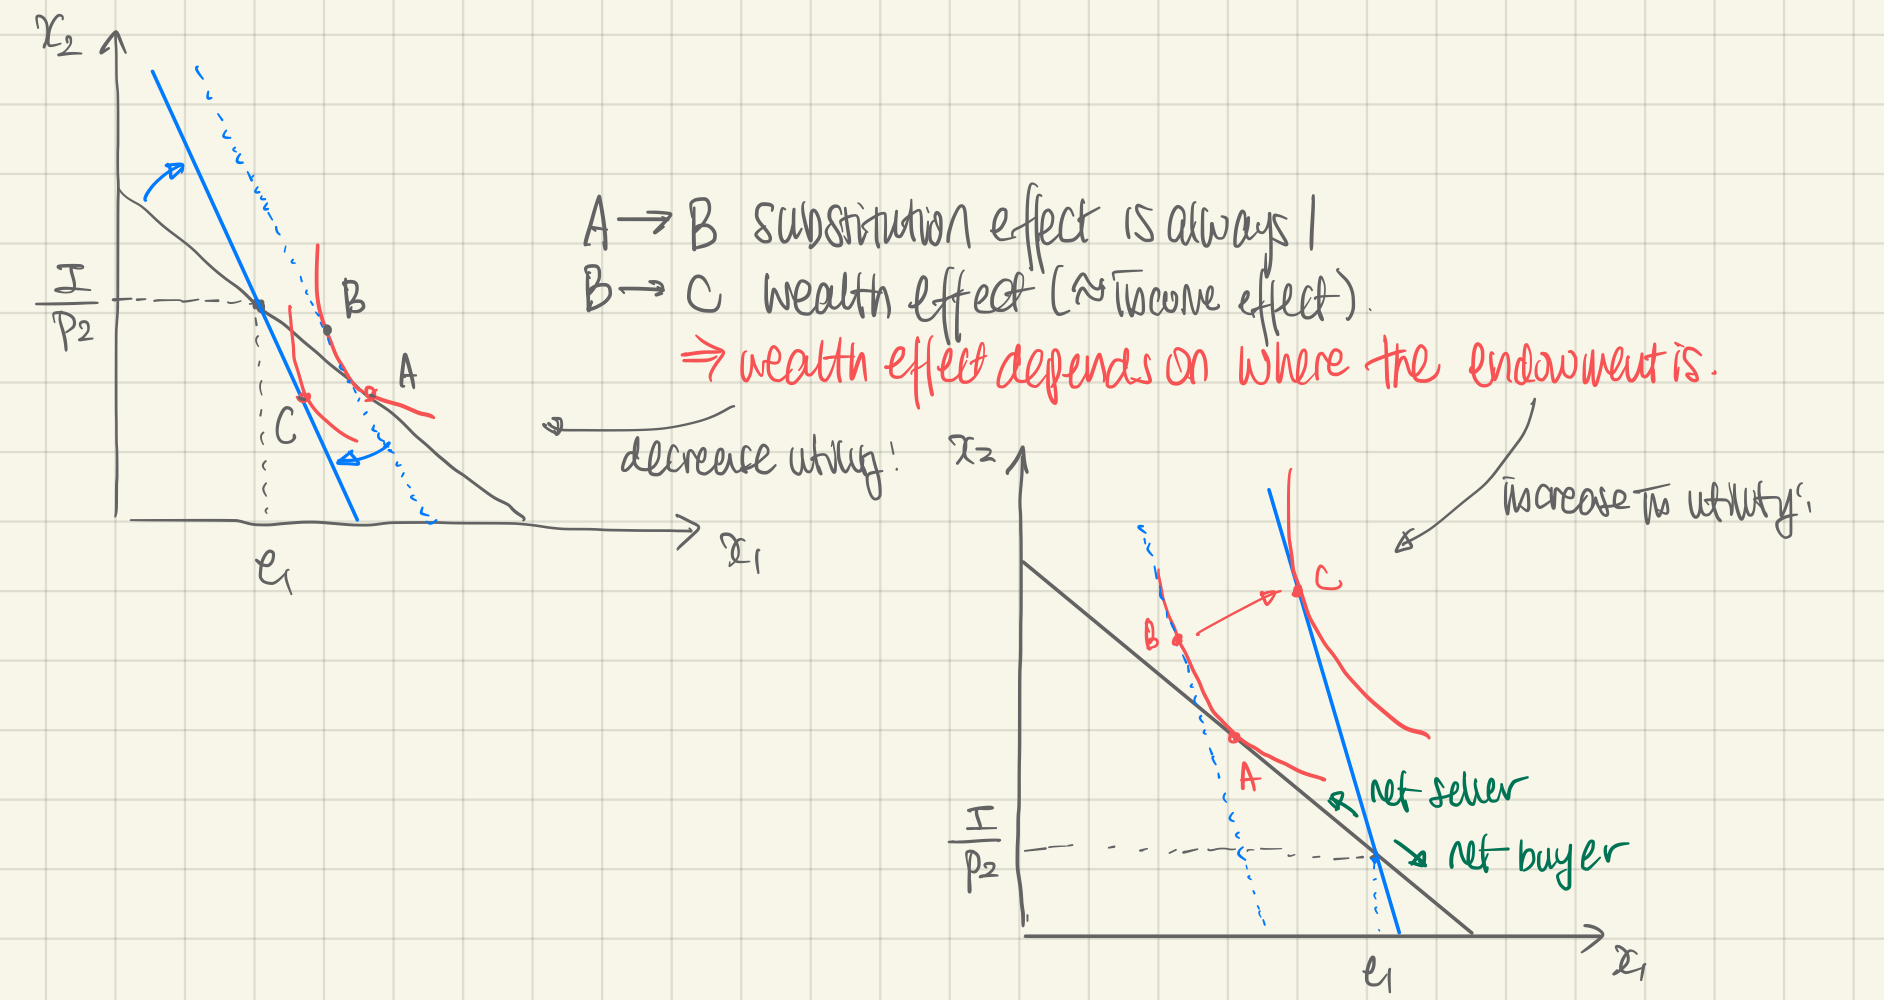 x₂
I/P₂
B
A
C
e₁
x₁
A → B substitution effect is always |
B → C wealth effect (≈ income effect).
⇒ wealth effect depends on where the endowment is.
decrease utility!
increase in utility!
x₂
C
B
A
net seller
net buyer
I/P₂
e₁
x₁